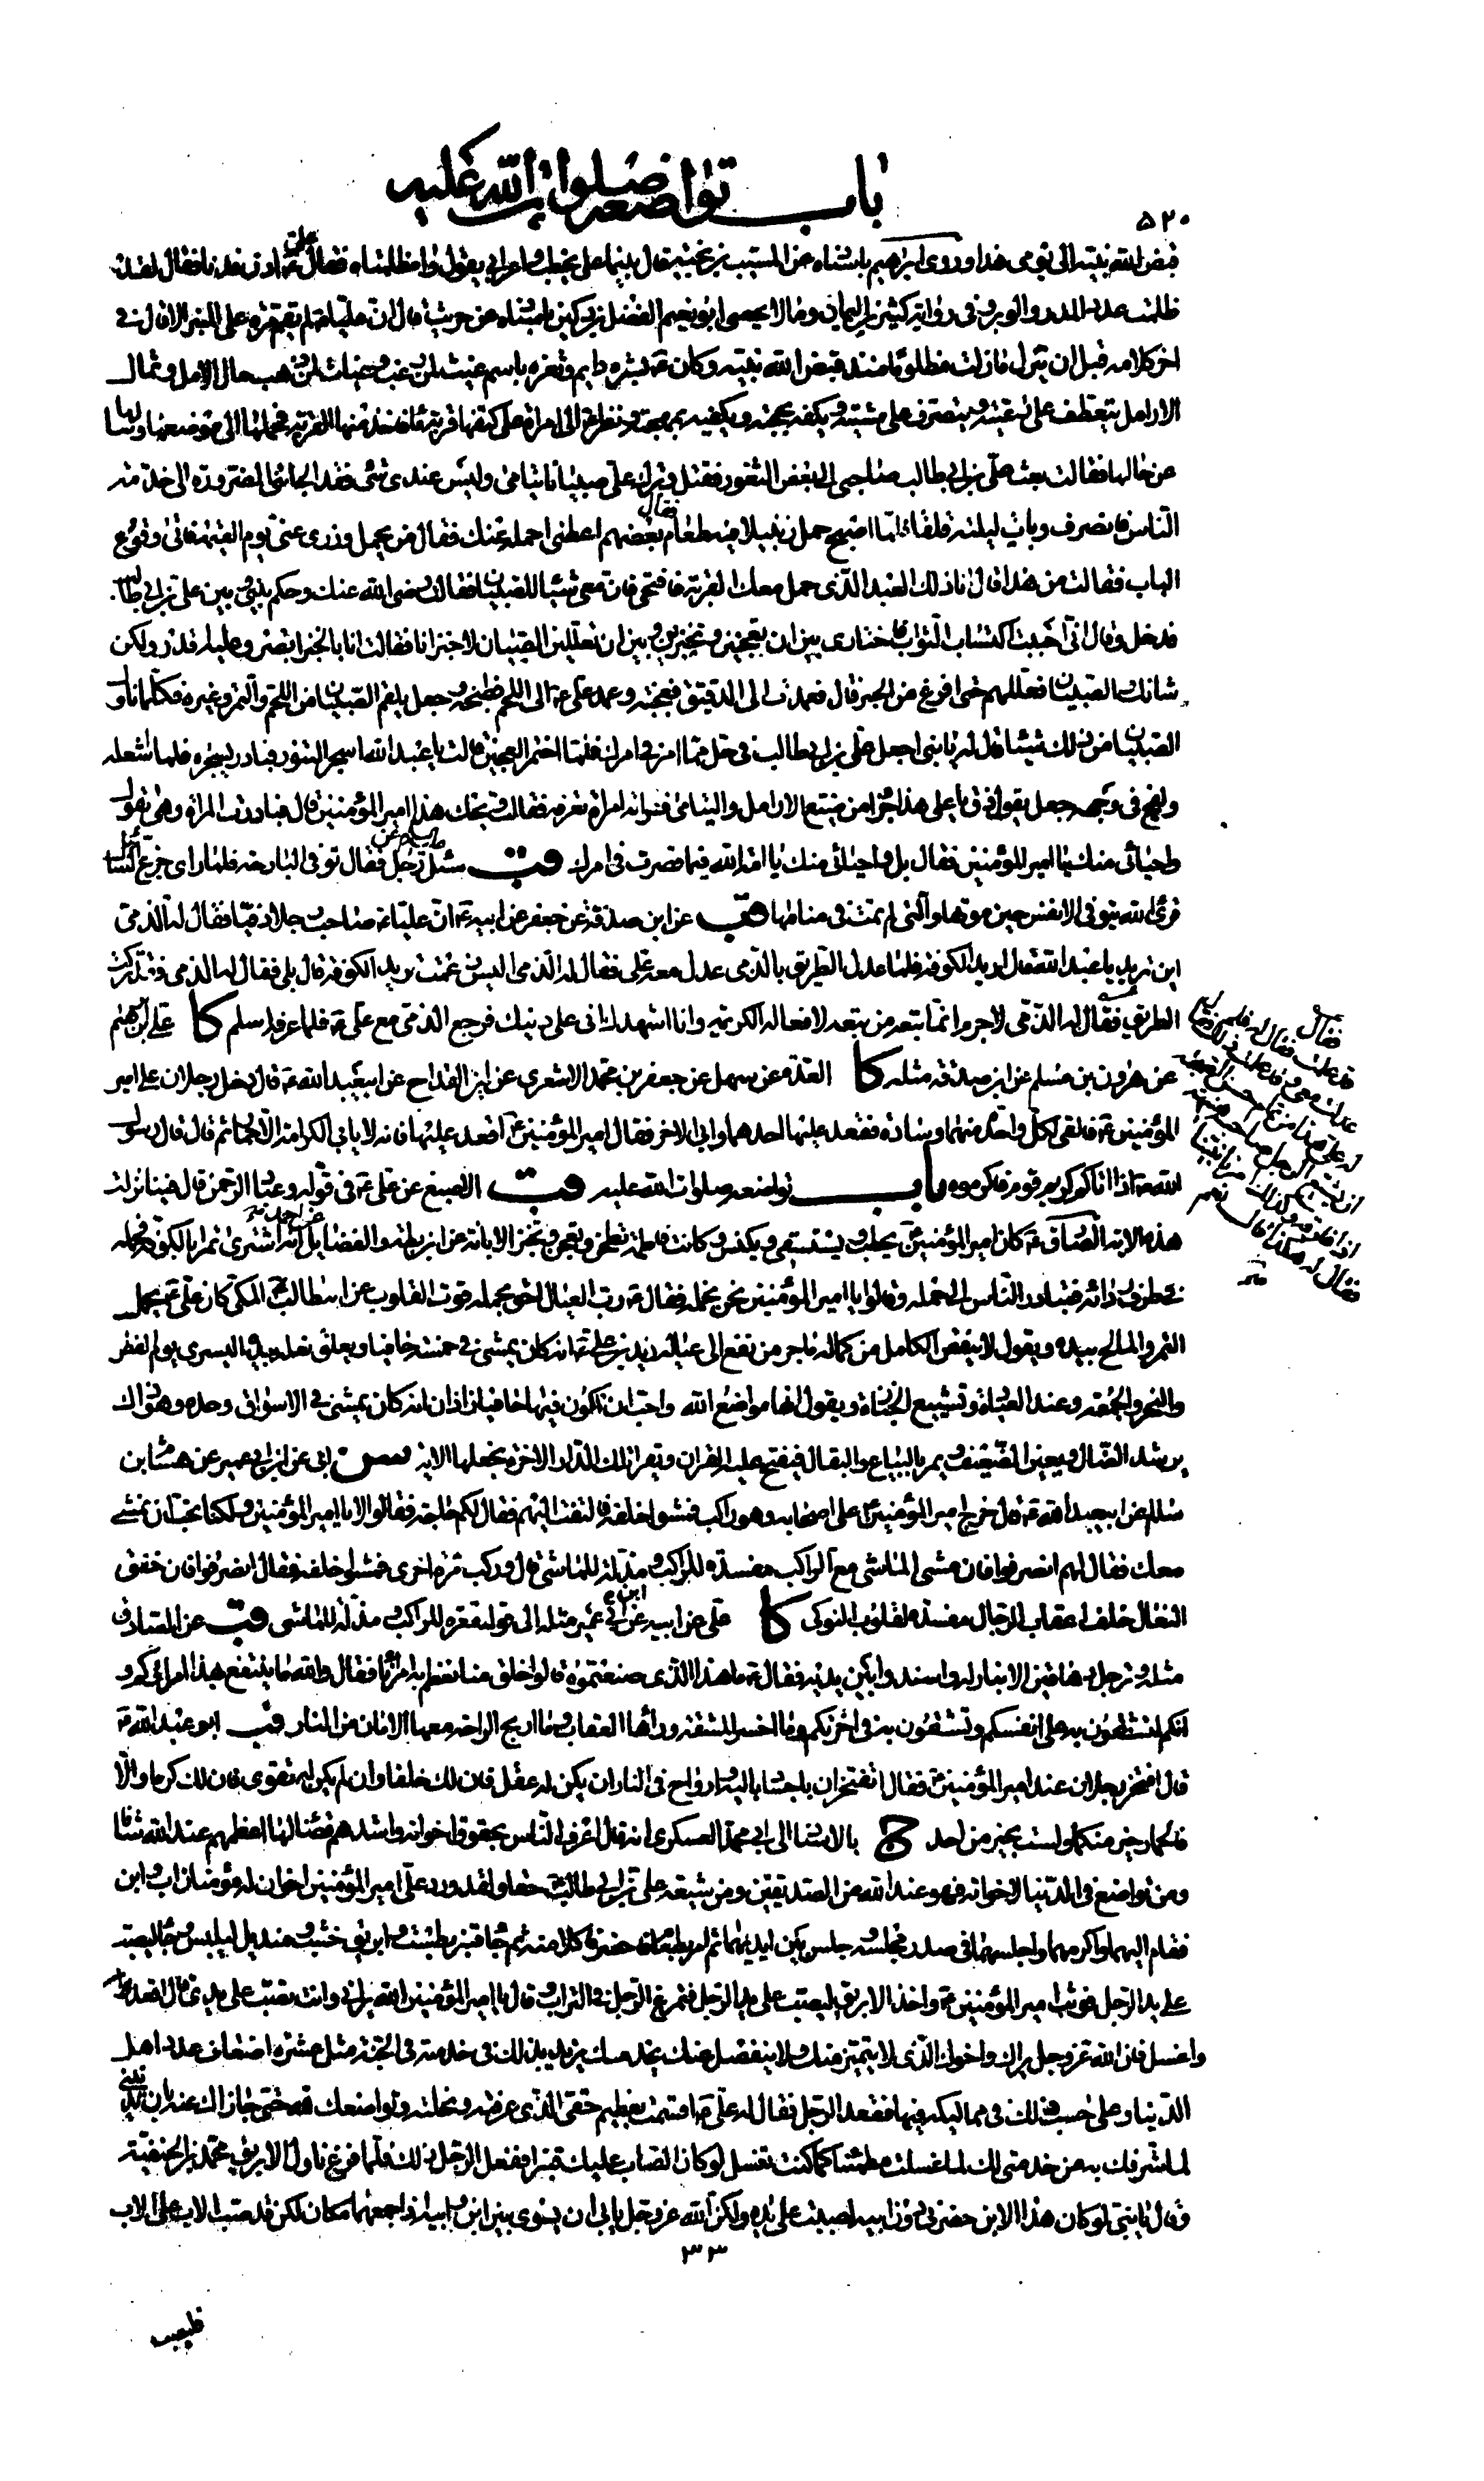 باب تواضعه صلوات الله عليه
۵۲۰
قبض الله نبيه الى يومى هذا وروى ابراهيم باسناده عن المسيب بن نجبة قال بينما على يخطب واعرابى يقول وا مظلمتاه فقال على ع ادن فدنا فقال لقد
ظلمت عدد المدر والوبر وفى رواية كثير بن اليمان وما لا يحصى ابو نعيم الفضل بن دكين باسناده عن حريث قال ان عليا ع لم يقم مرة على المنبر الا قال فى
اخر كلامه قبل ان ينزل ما زلت مظلوما منذ قبض الله نبيه وكان ع بشره دايم وثغره باسم غيث لمن رغب وغياث لمن ذهب مال الامل وثمال
الارامل يتعطف على رعيته ويتصرف على مشيته ويكفه بحجته ويكفيه بمهجته ونظر ع الى امراة على كتفها قربة ماء فاخذ منها القربة فحملها الى موضعها وسالها
عن حالها فقالت بعث على بن ابى طالب صاحبى الى بعض الثغور فقتل وترك على صبيانا يتامى وليس عندى شىء فقد الجأتنى الضرورة الى خدمة
الناس فانصرف وبات ليلته قلقا فلما اصبح حمل زنبيلا فيه طعام فقال بعضهم اعطنى احمله عنك فقال من يحمل وزرى عنى يوم القيمة فاتى وقرع
الباب فقالت من هذا قال انا ذلك العبد الذى حمل معك القربة فافتحى فان معى شيئا للصبيان فقالت رضى الله عنك وحكم بينى وبين على بن ابى طالب
فدخل وقال انى احببت اكتساب الثواب فاختارى بين ان تعجنين وتخبزين وبين ان تعللين الصبيان لاخبز انا فقالت انا بالخبز ابصر وعليه اقدر ولكن
شانك والصبيان فعللهم حتى افرغ من الخبز قال فعمدت الى الدقيق فعجنته وعمد على ع الى اللحم فطبخه وجعل يلقم الصبيان من اللحم والتمر وغيره فكلما ناول
الصبيان من ذلك شيئا قال له يا بنى اجعل على بن ابى طالب فى حل مما امر فى امرك فلما اختمر العجين قالت يا عبد الله اسجر التنور فبادر بسجره فلما اشعله
ولفح فى وجهه جعل يقول ذق يا على هذا جزاء من ضيع الارامل واليتامى فراته امراة تعرفه فقالت ويحك هذا امير المؤمنين قال فبادرت المراة وهى تقول
واحيائى منك يا امير المؤمنين فقال بل واحيائى منك يا امة الله فيما قصرت فى امرك قب سئل رجل عن مات رجل فقال توفى البارحة فلما راى جزع السائل
قرء الله يتوفى الانفس حين موتها والتى لم تمت فى منامها قب عن ابن صدقة عن جعفر عن ابيه ع ان عليا ع صاحب رجلا ذميا فقال له الذمى
اين تريد يا عبد الله فقال اريد الكوفة فلما عدل الطريق بالذمى عدل معه على فقال له الذمى اليس زعمت تريد الكوفة قال بلى فقال له الذمى فقد تركت
الطريق فقال له الذمى لا جرم انما تبعه من تبعه لافعاله الكريمة وانا اشهدك انى على دينك فرجع الذمى مع على ع فلما عرفه اسلم كا على بن ابرهيم
عن هرون بن مسلم عن ابن صدقة مثله كا العدة عن سهل عن جعفر بن محمد الاشعرى عن ابن القداح عن ابيعبد الله ع قال دخل رجلان على امير
المؤمنين ع فالقى لكل واحد منهما وسادة فقعد عليها احدهما وابى الاخر فقال امير المؤمنين ع اقعد عليها فانه لا يابى الكرامة الا حمار ثم قال قال رسول
الله ص اذا اتاكم كريم قوم فاكرموه باب تواضعه صلوات الله عليه قب الاصبغ عن على ع فى قوله وعباد الرحمن قال فينا نزلت
هذه الاية الصادق ع كان امير المؤمنين ع يحطب ويستسقى ويكنس وكانت فاطمة تطحن وتعجن وتخبز الابانة عن ابن بطة والفضايل عن احمد انه اشترى تمرا بالكوفة فحمله
فى طرف ردائه فتبادر الناس الى حمله وقالوا يا امير المؤمنين نحن نحمله فقال ع رب العيال احق بحمله قوت القلوب عن ابيطالب المكى كان على ع يحمل
التمر والملح بيده ويقول لا ينقص الكامل من كماله ما جر من نفع الى عياله زيد بن على ع انه كان يمشى فى خمسة حافيا ويعلق نعليه بيده اليسرى يوم الفطر
والنحر والجمعة وعند العيادة وتشييع الجنازة ويقول انها مواضع الله واحب ان اكون فيها حافيا زاذان انه كان يمشى فى الاسواق وحده وهو ذاك
يرشد الضال ويعين الضعيف ويمر بالبياع والبقال فيفتح عليه القران ويقرء تلك الدار الاخرة نجعلها الاية سن ابى عن ابن ابى عمير عن هشام بن
سالم عن ابيعبد الله ع قال خرج امير المؤمنين ع على اصحابه وهو راكب فمشوا خلفه فالتفت اليهم فقال لكم حاجة فقالوا لا يا امير المؤمنين ولكنا نحب ان نمشى
معك فقال لهم انصرفوا فان مشى الماشى مع الراكب مفسدة للراكب ومذلة للماشى قال وركب مرة اخرى فمشوا خلفه فقال انصرفوا فان خفق
النعال خلف اعقاب الرجال مفسدة لقلوب النوكى كا على عن ابيه عن ابن ابى عمير مثله الى قوله معرة للراكب ومذلة للماشى قب عن الصادق
مثله وترجل دهاقين الانبار له واسندوا بين يديه فقال ع ما هذا الذى صنعتموه قالوا خلق منا نعظم به امراءنا فقال والله ما ينتفع بهذا امراؤكم و
انكم لتشقون به على انفسكم وتشقون به فى اخرتكم وما اخسر المشقة وراءها العقاب وما اربح الراحة معها الامان من النار قب ابو عبد الله ع
قال افتخر رجلان عند امير المؤمنين ع فقال اتفتخران باجساد بالية وارواح فى النار ان يكن له عقل فان لك خلقا وان لم يكن له تقوى فان لك كرما والا
فالحمار خير منكما ولست بخير من احد ج بالاسناد الى ابى محمد العسكرى انه قال اعرف الناس بحقوق اخوانه واشدهم قضاء لها اعظمهم عند الله شانا
ومن تواضع فى الدنيا لاخوانه فهو عند الله من الصديقين ومن شيعة على بن ابى طالب ع حقا ولقد ورد على امير المؤمنين اخوان له مؤمنان اب وابن
فقام اليهما واكرمهما واجلسهما فى صدر مجلسه وجلس بين ايديهما ثم امر بطعام فاحضر فاكلا منه ثم جاء قنبر بطست وابريق خشب ومنديل لييبس وجاء ليصب
على يد الرجل فوثب امير المؤمنين ع واخذ الابريق ليصب على يد الرجل فتمرغ الرجل فى التراب وقال يا امير المؤمنين الله يرانى وانت تصب على يدى قال اقعد
واغسل فان الله عز وجل يراك واخوك الذى لا يتميز منك ولا ينفضل عنك يخدمك يريد بذلك فى خدمته فى الجنة مثل عشرة اضعاف عدد اهل
الدنيا وعلى حسب ذلك فى مماليكه فيها فقعد الرجل فقال له على ع اقسمت بعظيم حقى الذى عرفته ونحلته وتواضعك لله حتى جازاك عنه بان تدنينى
لما شرفك به من خدمتى لك لما غسلت مطمئنا كما كنت تغسل لو كان الصاب عليك قنبرا ففعل الرجل ذلك فلما فرغ ناول الابريق محمد بن الحنفية
وقال يا بنى لو كان هذا الابن حضرنى دون ابيه لصببت على يده ولكن الله عز وجل يابى ان يسوى بين ابن وابيه اذا جمعهما مكان لكن قد صب الاب على الاب
۳۳
فليصب
فقال
قد علمت فقال له فلم
عدلت معى وقد علمت ذلك فقال
له على هذا من تمام حسن الصحبة
ان يشيع الرجل صاحبه هنيئة
اذا فارقه وكذلك امرنا نبينا
فقال له هكذا قال نعم